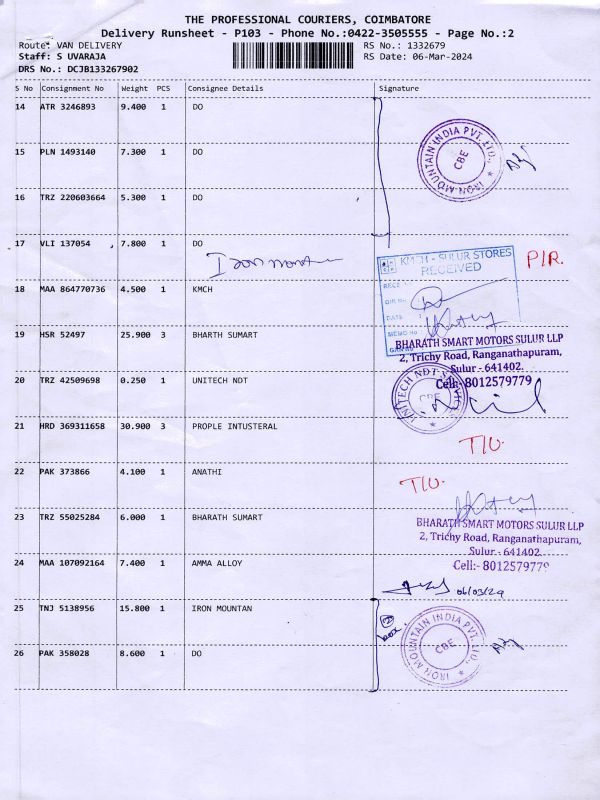 THE PROFESSIONAL COURIERS, COIMBATORE
Delivery Runsheet - P103 - Phone No.:0422-3505555 - Page No.:2
Route: VAN DELIVERY RS No.: 1332679
Staff: S UVARAJA RS Date: 06-Mar-2024
DRS No.: DCJB133267902
S No Consignment No Weight PCS Consignee Details Signature
14 ATR 3246893 9.400 1 DO
IRON MOUNTAIN INDIA PVT. LTD.,
CBE
15 PLN 1493140 7.300 1 DO
16 TRZ 220603664 5.300 1 DO
17 VLI 137054 7.800 1 DO
KMCH - SULUR STORES
RECEIVED
P/R.
DATE :
MEMO No
18 MAA 864770736 4.500 1 KMCH
19 HSR 52497 25.900 3 BHARTH SUMART
BHARATH SMART MOTORS SULUR LLP
2, Trichy Road, Ranganathapuram,
Sulur - 641402.
Cell:- 8012579779
20 TRZ 42509698 0.250 1 UNITECH NDT
UNITECH NDT SERVICES
CBE
21 HRD 369311658 30.900 3 PROPLE INTUSTERAL
T/U.
22 PAK 373866 4.100 1 ANATHI
T/U.
23 TRZ 55025284 6.000 1 BHARATH SUMART
BHARATH SMART MOTORS SULUR LLP
2, Trichy Road, Ranganathapuram,
Sulur - 641402.
Cell:- 8012579779
24 MAA 107092164 7.400 1 AMMA ALLOY
06/03/24
25 TNJ 5138956 15.800 1 IRON MOUNTAN
2 box
IRON MOUNTAIN INDIA PVT. LTD.,
CBE
26 PAK 358028 8.600 1 DO